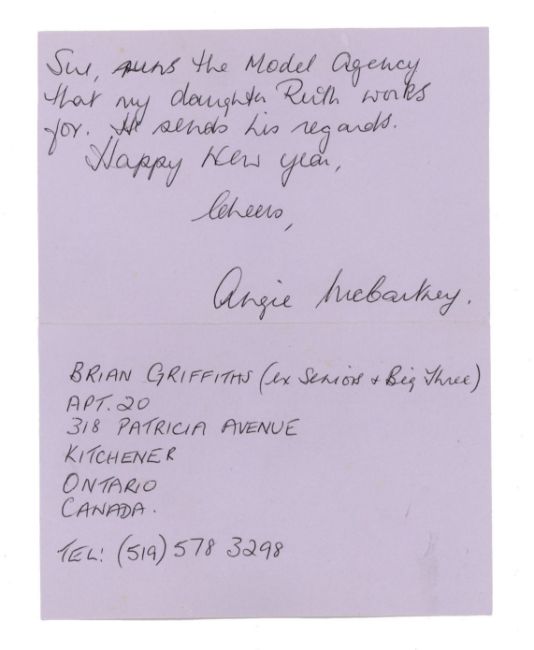 Sue, runs the Model Agency
that my daughter Ruth works
for. He sends his regards.
Happy New year,
Cheers,
Angie McCartney.
BRIAN GRIFFITHS (ex Seniors + Big Three)
APT. 20
318 PATRICIA AVENUE
KITCHENER
ONTARIO
CANADA.
TEL: (519) 578 3298